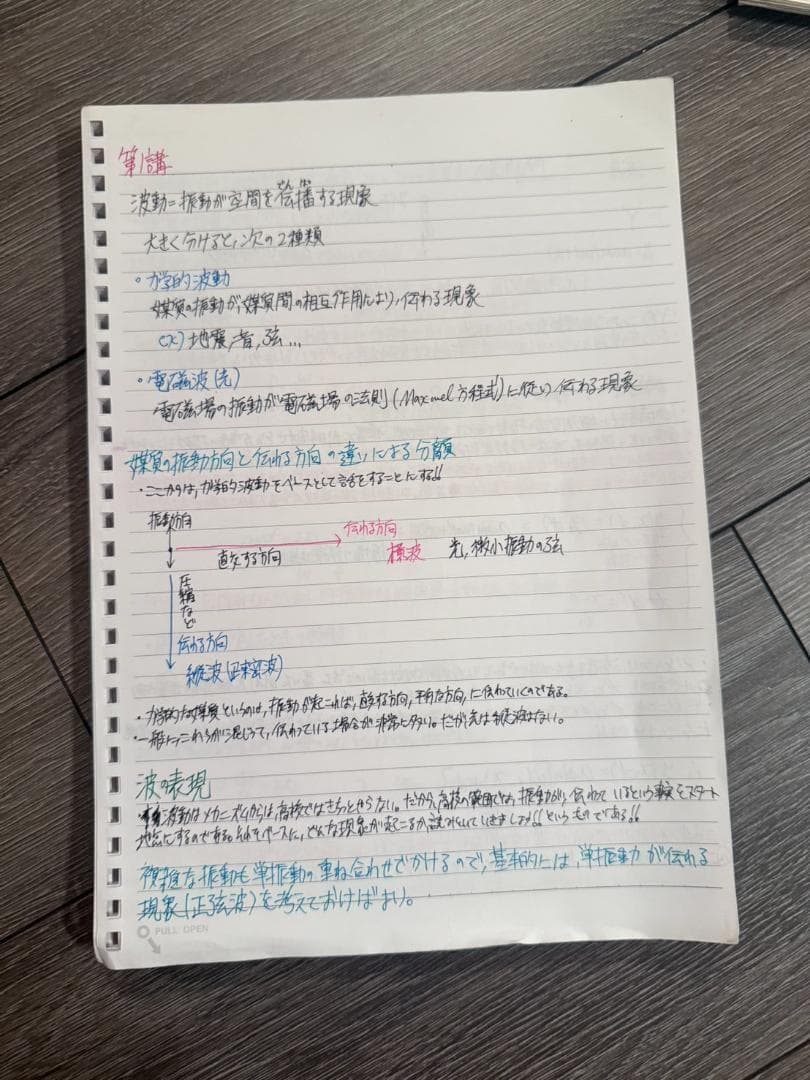 第1講
波動=振動が空間を伝播する現象
大きく分けると,次の2種類
・力学的波動
媒質の振動が,媒質間の相互作用により,伝わる現象
ex) 地震,音,弦...
・電磁波(光)
電磁場の振動が電磁場の法則(Maxmel方程式)に従い伝わる現象
媒質の振動方向と伝わる方向の違いによる分類
・ここからは,力学的波動をベースとして話をすることにする!!
振動方向
伝わる方向
直交する方向
横波 光,微小振動の弦
圧縮など
伝わる方向
縦波(疎密波)
・力学的な媒質というのは,振動が起これば,直交する方向,平行な方向,に伝わっていくのである。
・一般にこれらが混じって,伝わっている場合が非常に多い。だが光は縦波はない。
波の表現
波動はメカニズムからは,高校ではきちっとやらない。だから,高校の範囲では,振動が,伝わっているという事実をスタート
地点にするのである。それをベースに,どんな現象が起こるか読みといていきましょう!!というものである!!
複雑な振動も単振動の重ね合わせでかけるので,基本的には,単振動が伝わる
現象(正弦波)を考えておけばよい。
PULL OPEN